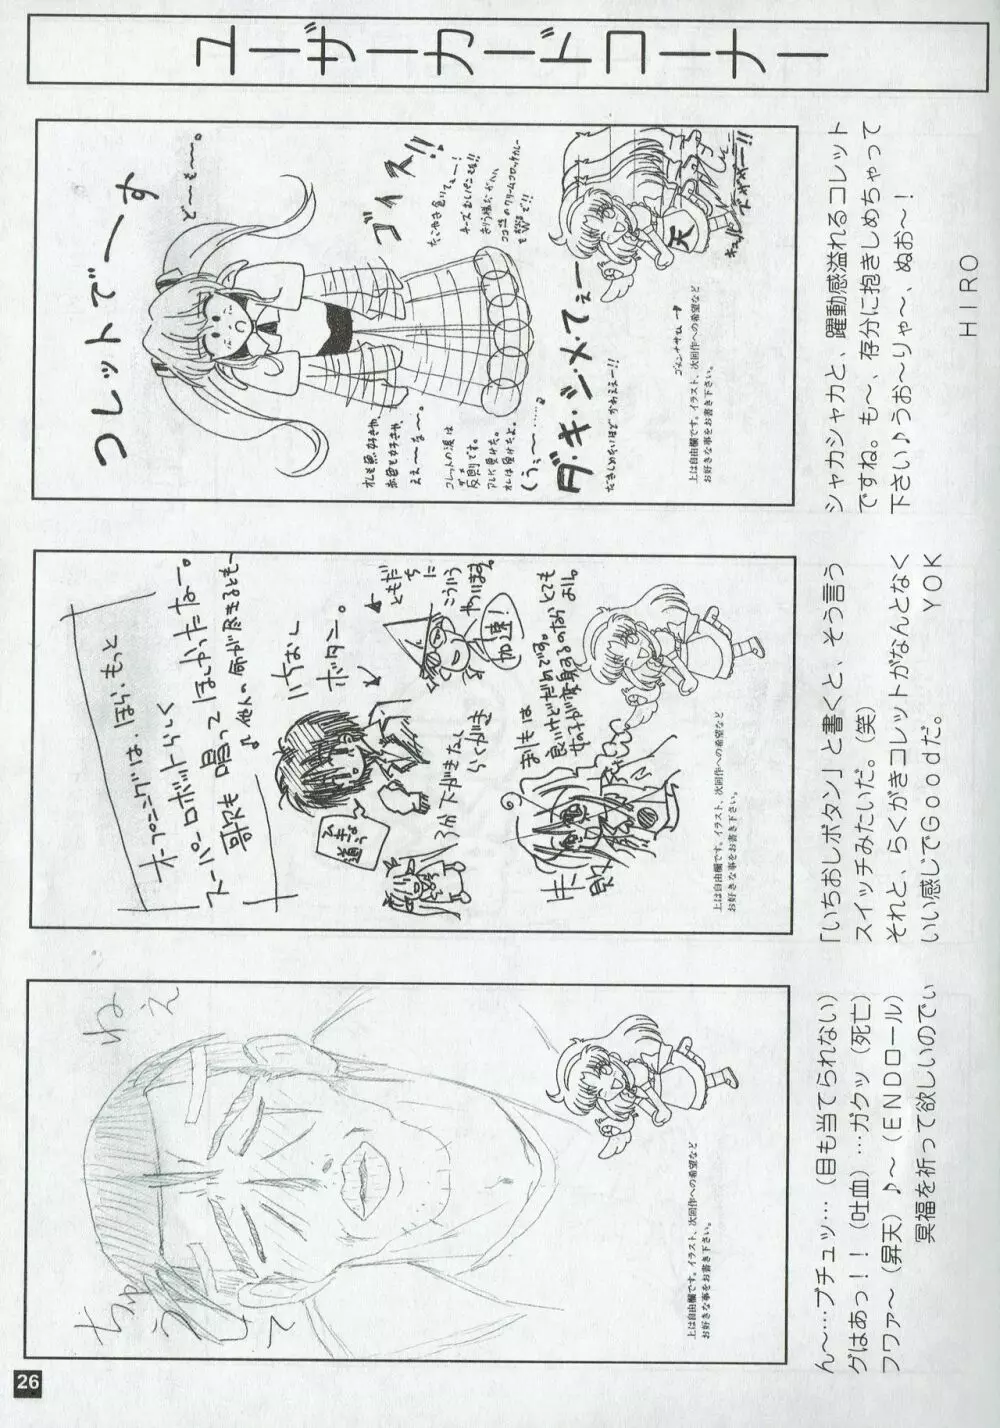 ユーザーカードコーナー
コレットでーす
どーもー。
ゴイス!!
たこやき食いてぇー!
私も魚好きや、
赤色も好きや
ええーなー。
コレットの涙は
反則です。
アレに受けた。
オレは受けたよ。
(うぅ〜……。
ダ・キ・シ・メ・てぇー
だきしめたいほどかわええー!!
ゴメンナサイ…
天
上は自由欄です。イラスト、次回作への希望など
お好きな事をお書き下さい。
シャカシャカと、躍動感溢れるコレット
ですね。も〜、存分に抱きしめちゃって
下さい♪うお〜りゃ〜、ぬお〜!
HIRO
オープニングは、ほら、もっと
スーパーロボットらしく
歌でも唱ってほしかったなー。
♪他人の命が尽きるともー
いちおし
ボタン。
ともだ
ちに
こういう
やついます。
加速!
3分下がきなし
らくがき
おしもは
良いけどだめです。
女の子が変身するのなら とても
よし。
上は自由欄です。イラスト、次回作への希望など
お好きな事をお書き下さい。
「いちおしボタン」と書くと、そう言う
スイッチみたいだ。(笑)
それと、らくがきコレットがなんとなく
いい感じでGoodだ。 YOK
ねえ
ちゅう
して
上は自由欄です。イラスト、次回作への希望など
お好きな事をお書き下さい。
ん〜…ブチュッ…(目も当てられない)
グはあっ!!(吐血)…ガクッ(死亡)
フワァ〜(昇天)♪〜(ENDロール)
冥福を祈って欲しいのでぃ
26